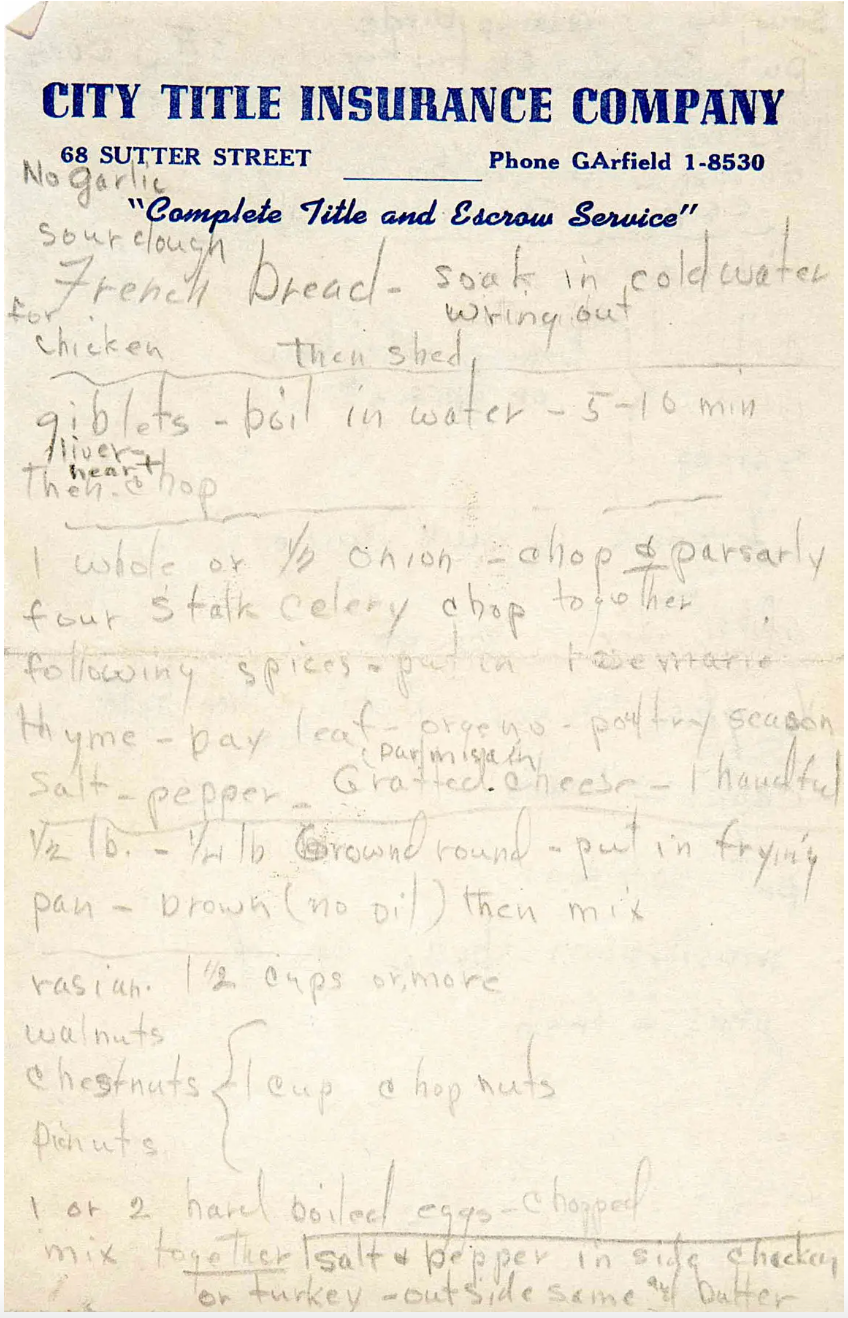 CITY TITLE INSURANCE COMPANY
68 SUTTER STREET Phone GArfield 1-8530
No garlic
"Complete Title and Escrow Service"
sourdough
French bread - soak in cold water
for wring out
chicken then shed
giblets - boil in water - 5-10 min
liver-
heart
then chop
1 whole or 1/2 onion - chop & parsarly
four stalk celery chop together
following spices - put in rosemarie
thyme - bay leaf - orgeno - poultry season
(parmisain)
salt - pepper - Gratted cheese - 1 handful
1/2 lb. - 1/4 lb Ground round - put in frying
pan - brown (no oil) then mix
rasian. 1 1/2 cups or more
walnuts
chestnuts { 1 cup chop nuts
pinuts
1 or 2 hard boiled eggs - chopped
mix together salt & pepper in side chicken
or turkey - outside same butter